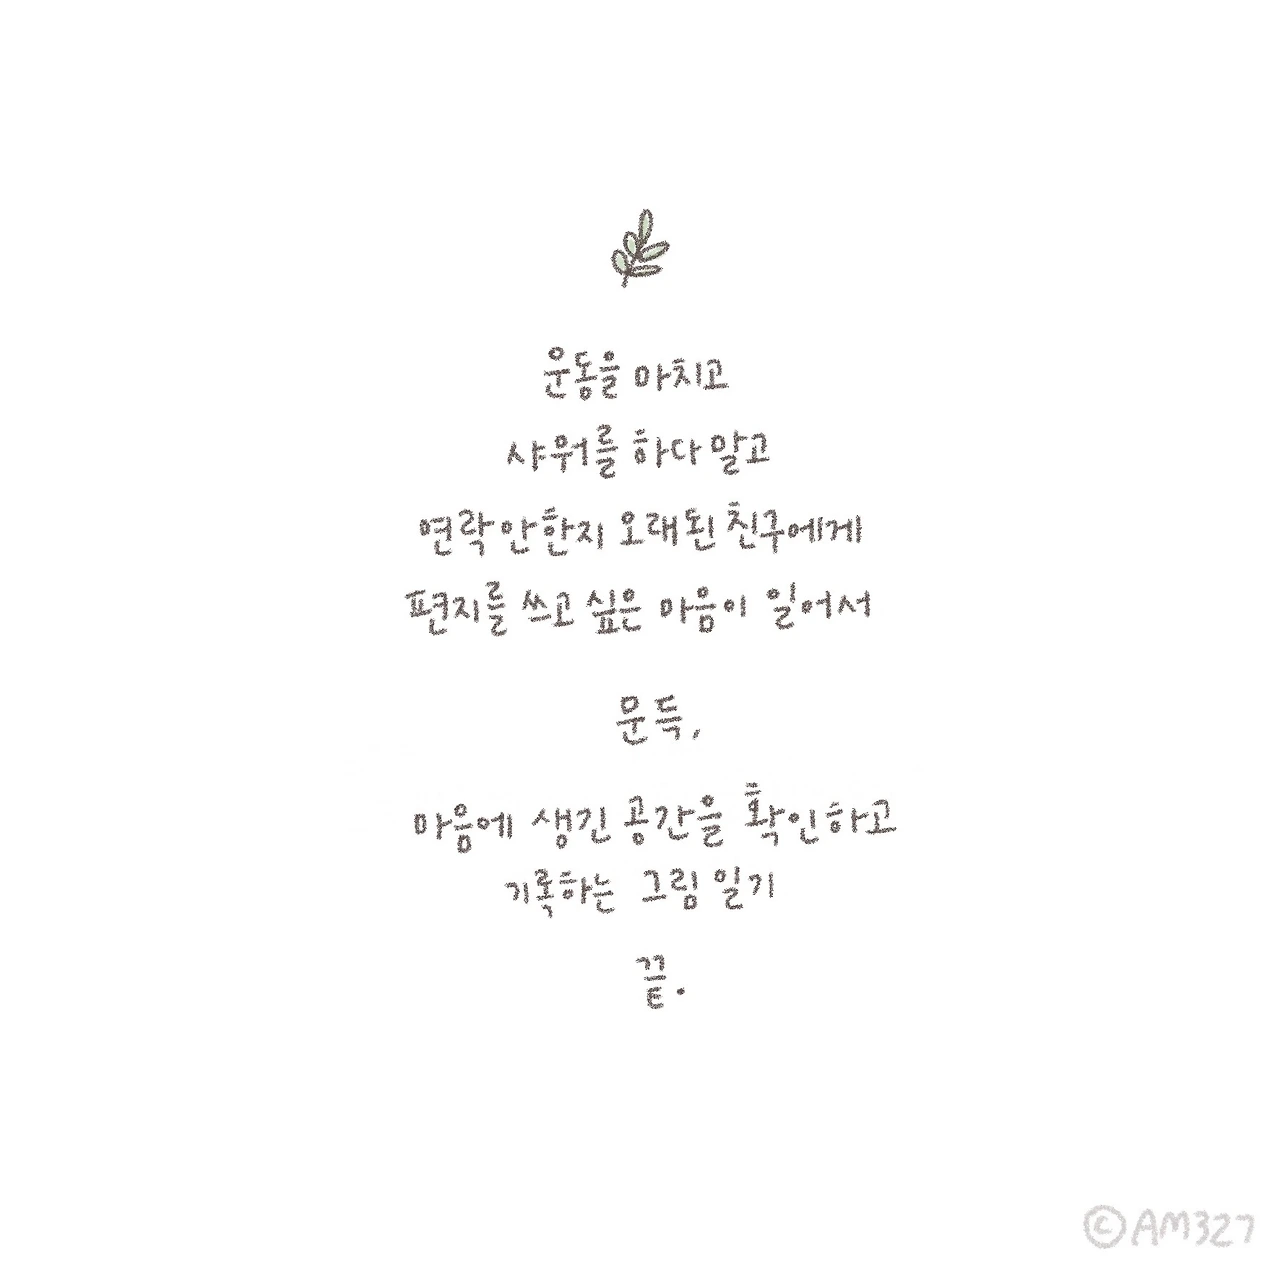 운동을 마치고
샤워를 하다 말고
연락 안한지 오래된 친구에게
편지를 쓰고 싶은 마음이 일어서
문득,
마음에 생긴 공간을 확인하고
기록하는 그림 일기
끝.
©AM327